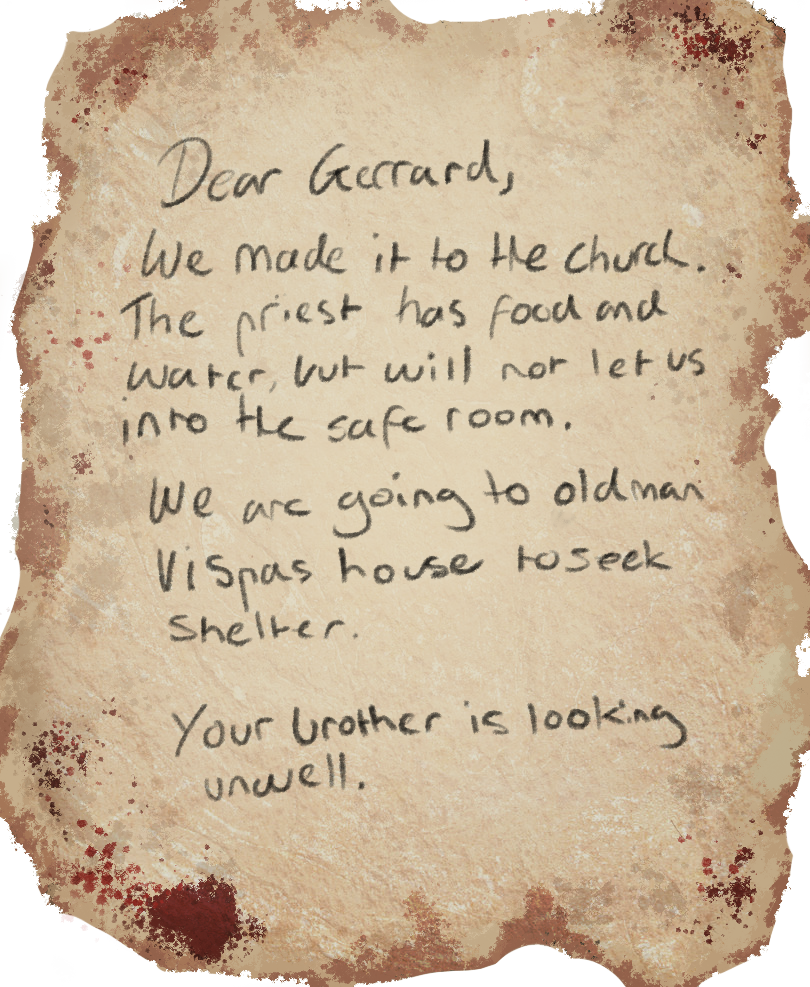 Dear Gerrard,
We made it to the church.
The priest has food and
water, but will not let us
into the safe room.
We are going to oldman
Vispas house to seek
shelter.
Your brother is looking
unwell.